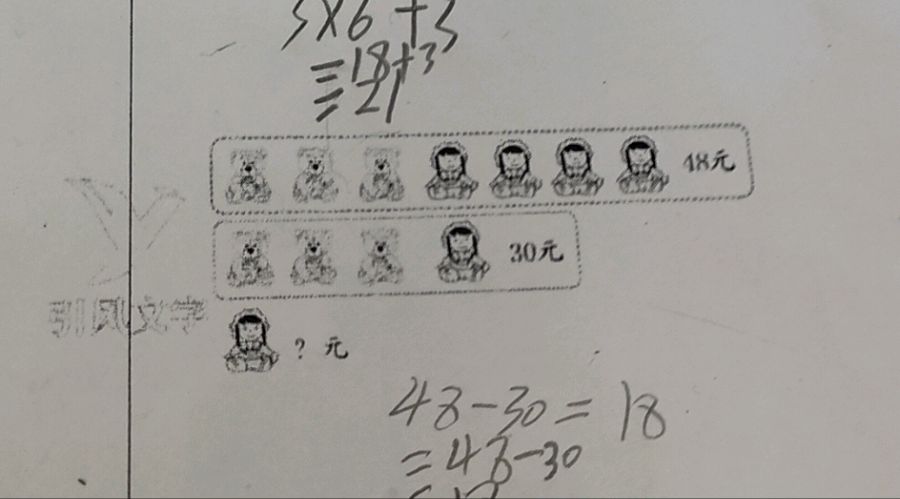 3×6+3
=18+3
=21
48元
30元
引风文字
? 元
48-30=18
=48-30